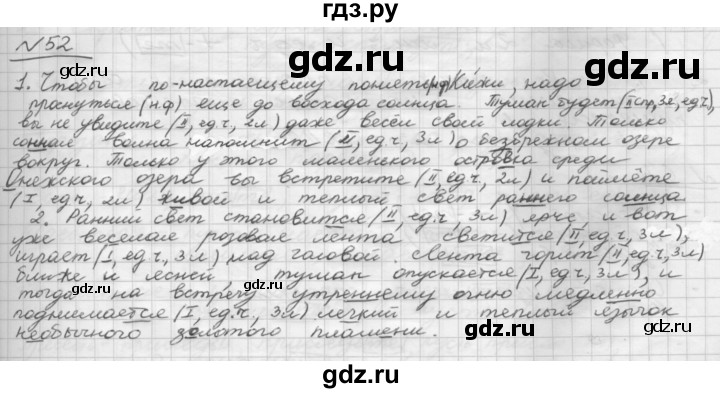 гдз.ру
№52
1. Чтобы по-настаещему понять(н.ф) Кижи, надо
проснуться (н.ф) еще до восхода солнца. Туман будет (II спр, 3л, ед.ч),
вы не увидите (II, ед.ч, 2л) даже вести своей лодки. Только
сонная волна напомнит (II, ед.ч, 3л) о безбрежном озере
вокруг. Только у этого маленького островка среди
Онежского озера вы встретите (II, ед.ч, 2л) и поймёте
(I, ед.ч, 2л) живой и теплый свет раннего солнца.
2. Ранний свет становится (II, ед.ч, 3л) ярче и вот
уже веселая розовая лента светится (II, ед.ч, 3л),
играет (I, ед.ч, 3л) над головой. Лента горит (II, ед.ч, 3л)
ближе и ясней, туман опускается (I, ед.ч, 3л), и
тогда на встречу утреннему огню медленно
поднимается (I, ед.ч, 3л) легкий и теплый язычок
необычного золотого пламени.
gdz.ru
gdz.ru
gdz.ru
gdz.ru
gdz.ru
gdz.ru
gdz.ru
gdz.ru
gdz.ru